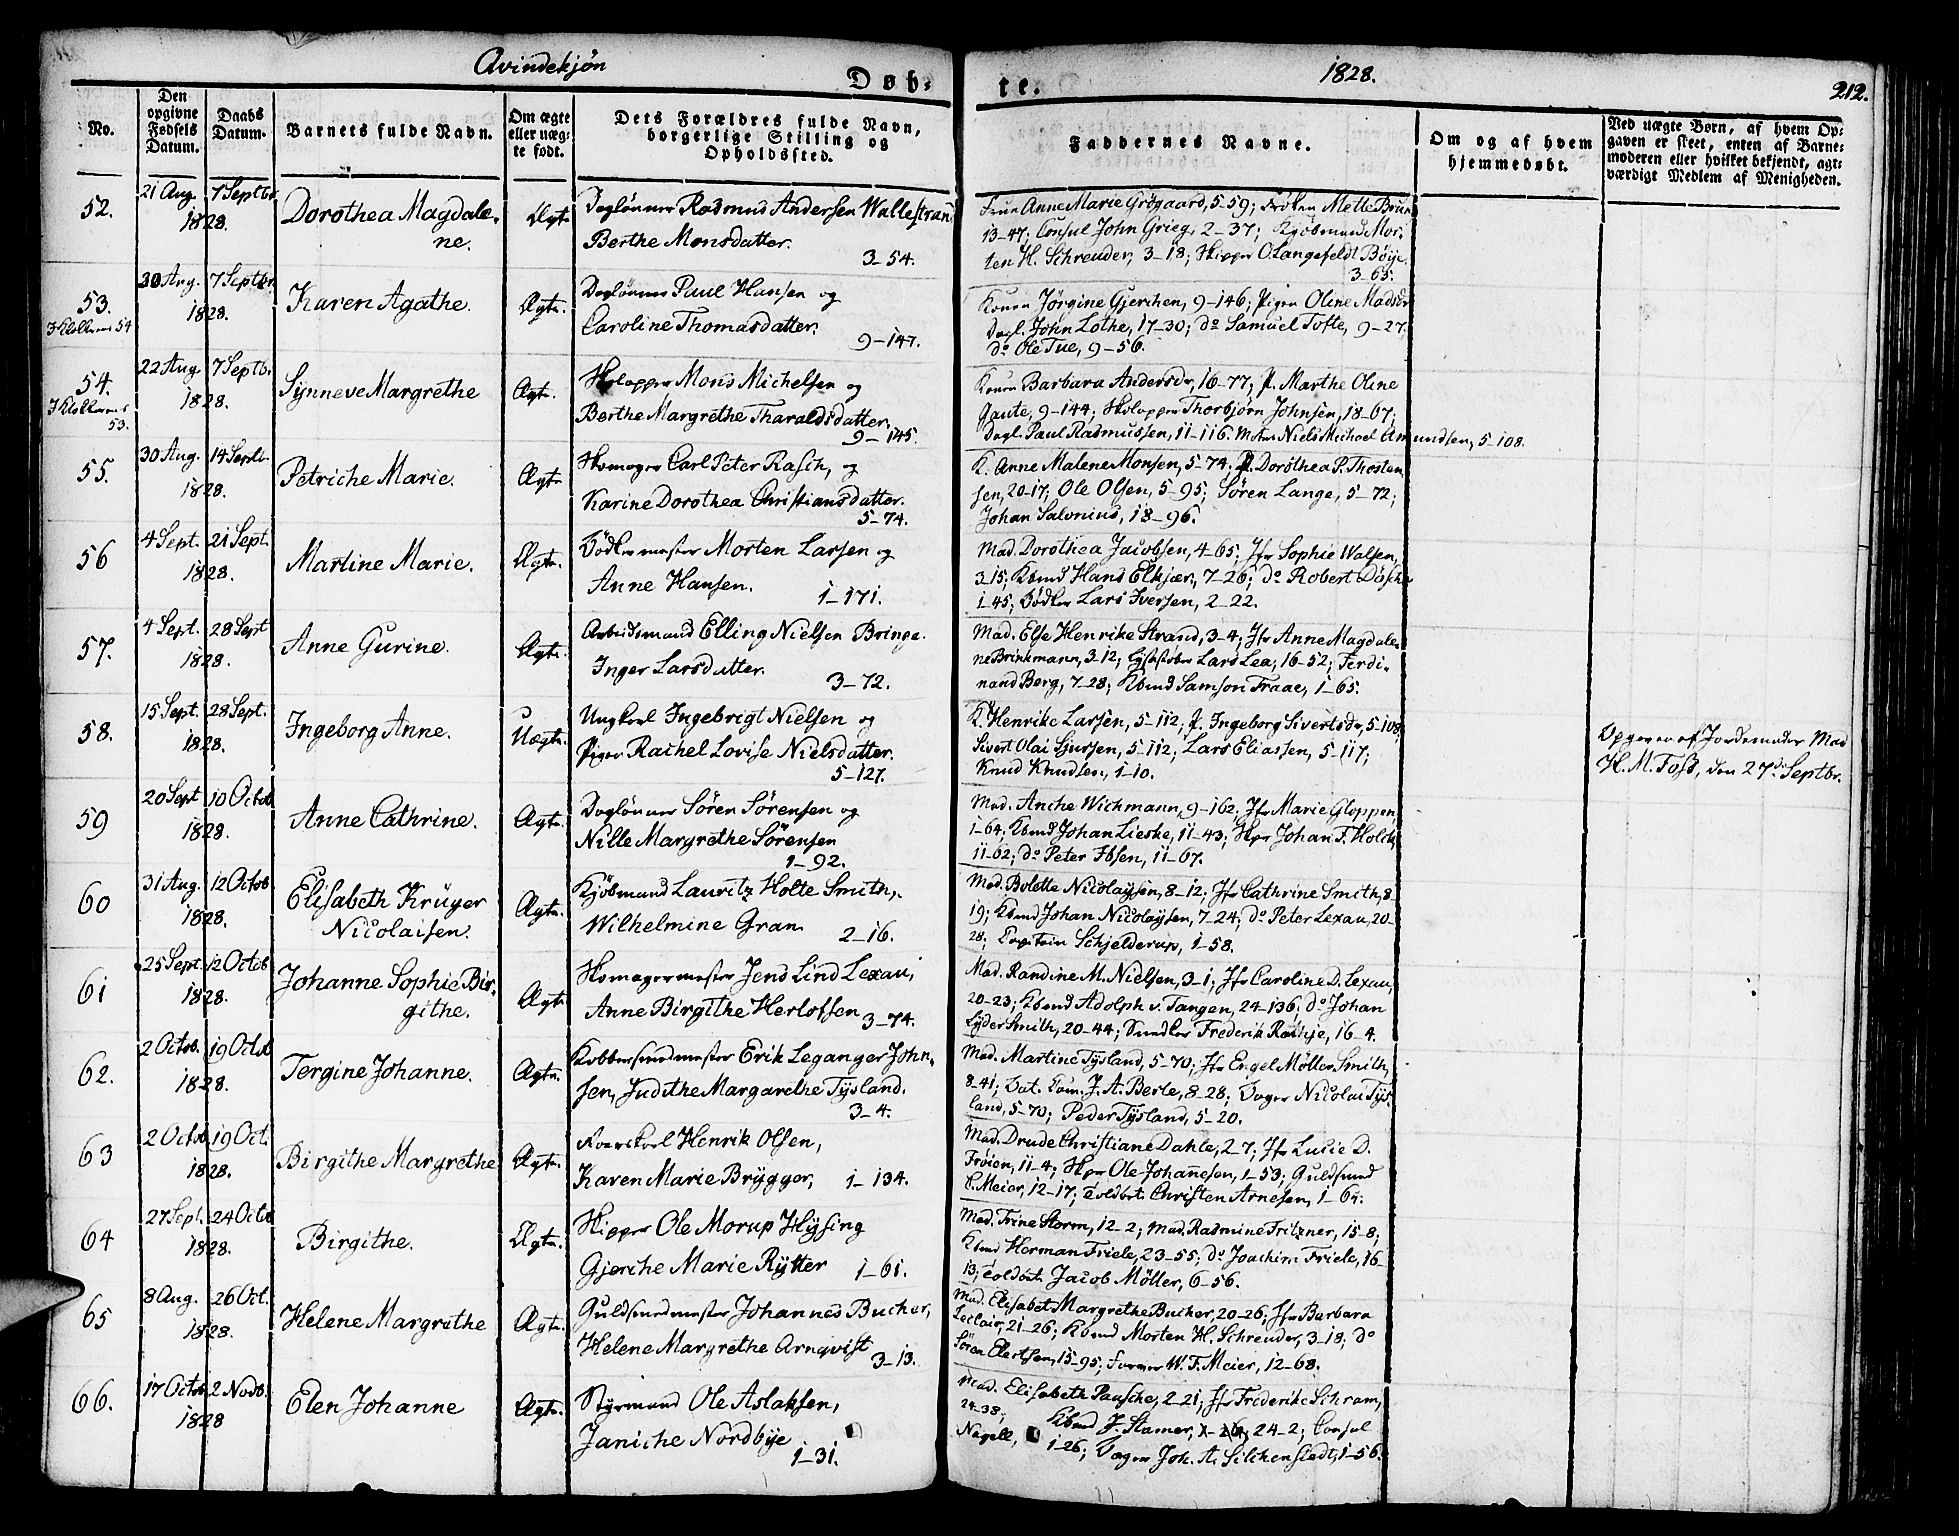 Qvindekjøn
Døb-
te.
1828.
212.
No.
Den opgivne Fødsels Datum.
Daabs Datum.
Barnets fulde Navn.
Om ægte eller uæg-te født.
Dets Forældres fulde Navn, borgerlige Stilling og Opholdssted.
Faddernes Navne.
Om og af hvem hjemmedøbt.
Ved uægte Børn, af hvem Op-gaven er skeet, enten af Barne-moderen eller hvilket bekjendt, agt-værdigt Medlem af Menigheden.
52.
21 Aug. 7 Septbr.
1828.
Dorothea Magdale-
ne.
Ægte.
Daglønner Rasmus Andersen Wallestrand
Berthe Monsdatter.
3-54.
Frue Anne Marie Grøgaard, 5-59; Frøken Mette Brun
13-47; Consul John Grieg, 2-37; Kjøbmand Mor-
ten H. Schreuder, 3-18; Skipper O. Langefeldt Bøije,
3-65.
53.
30 Aug. 7 Septbr.
1828.
Karen Agathe.
Ægte.
Daglønner Paul Hansen og
Caroline Thomasdatter.
9-147.
Konen Jørgine Gjerchen, 9-146; Pigen Oline Madsdr
Dagl. John Lothe, 17-30; do Samuel Tofte, 9-27.
do Ole Tue, 9-56.
54.
53.
22 Aug 7 Septb.
1828.
Synneve Margrethe
Ægte.
Mons Michelsen og
Berthe Margrethe Tharaldsdatter,
9-145.
Konen Barbara Andersdr, 16-77; P. Marthe Oline
Gaute, 9-144; Thorbjørn Johnsen, 18-67;
Dagl. Paul Rasmussen, 11-116. Niels Michael Amundsen, 5-108.
55.
30 Aug. 14 Septb.
1828.
Petriche Marie.
Ægte
Skomager Carl Peter Rasch, og
Karine Dorothea Christiansdatter.
5-74.
K. Anne Malene Monsen, 5-74. P. Dorothea P. Thosten
sen, 20-17; Ole Olsen, 5-95; Søren Lange, 5-72;
Johan Salonius, 18-96.
56
4 Sept. 21 Sept.
1828.
Martine Marie.
Ægte.
Bødkermester Morten Larsen og
Anne Hansen.
1-171.
Mad. Dorothea Jacobsen, 4-65; Jfr Sophie Walsen,
3-15; Kbmd Hans Elkjær, 7-26; do Robert Døscher
1-45; Bødker Lars Iversen, 2-22.
57.
4 Sept. 28 Sept
1828.
Anne Gurine.
Ægte.
Arbeidsmand Elling Nielsen Bringe.
Inger Larsdatter.
3-72.
Mad. Else Henrike Strand, 3-4; Jfr Anne Magdale-
ne Brinkmann, 3-12; Lysestøber Lars Lea, 16-52; Ferdi-
nand Berg, 7-28; Kbmd Samson Traae, 1-65.
58.
15 Sept. 28 Sept.
1828.
Ingeborg Anne.
Uægte.
Ungkarl Ingebrigt Nielsen og
Pigen Rachel Lovise Nielsdatter.
5-127.
K. Henrike Larsen, 5-112; P. Ingeborg Sivertsdr, 5-108;
Sivert Olai Sjursen, 5-112; Lars Eliassen, 5-117;
Knud Knudsen, 1-10.
Opgiven af Jordemoder Mad
H. M. Foss, den 27de Septbr.
59
20 Sept 10 Octob
1828.
Anne Cathrine.
Ægte.
Daglønner Søren Sørensen og
Nille Margrethe Sørensen
1-92.
Mad. Anche Wichmann, 9-162, Jfr Marie Gloppen,
1-64; Kbmd Johan Lieske, 11-43; Skpr Johan F. Holck,
11-62; do Peter Ibsen, 11-67.
60
31 Aug. 12 Octob
1828.
Elisabeth Krüger
Nicolaisen.
Ægte.
Kjøbmand Lauritz Holte Smith,
Wilhelmine Gran
2-16.
Mad. Bolette Nicolaysen, 8-12; Jfr Cathrine Smith, 8
19; Kbmd Johan Nicolaysen, 7-24; do Peter Lexau, 20-
28; Capitain Schjelderup, 1-58.
61
25 Sept. 12 Octob
1828.
Johanne Sophie Bir-
githe.
Ægte.
Skomagermester Jens Lind Lexau;
Anne Birgithe Herlofsen
3-74.
Mad. Randine M. Nielsen, 3-1; Jfr Caroline D. Lexau,
20-23; Kbmd Adolph v. Tangen, 24-136; do Johan
Lyder Smith, 20-44; Snedker Frederik Rathje, 16-4.
62.
2 Octob. 19 Octob
1828.
Tergine Johanne.
Ægte.
Kobbersmedmester Erik Leganger John-
sen, Judithe Margarethe Tysland.
3-4.
Mad. Martine Tysland, 5-70; Jfr Engel Møller Smith,
8-41; J. A. Berle, 8-28; Bager Nicolai Tys-
land, 5-70; Peder Tysland, 5-20.
63
2 Octob 19 Oct.
1828.
Birgithe Margrethe
Ægte.
Henrik Olsen,
Karen Marie Brygger,
1-134.
Mad. Drude Christiane Dahle, 2-7; Jfr Lucie D.
Frøien, 11-4; Skpr Ole Johannesen, 1-53; Guldsmed
C. Meier, 12-17; Toldbet. Christen Arnesen, 1-64.
64
27 Sept. 24 Octb
1828.
Birgithe.
Ægte.
Skipper Ole Morup Hysing
Gjerche Marie Rytter
1-61.
Mad. Trine Storm, 12-2; Mad. Rasmine Fritzner, 15-8;
Kbmd Herman Friele, 23-55; do Joachim Friele, 16-
13; Toldbet. Jacob Møller, 6-56.
65
8 Aug. 26 Oct.
1828.
Helene Margrethe
Ægte.
Guldsmedmester Johannes Bucher,
Helene Margrethe Arnqvist
3-13.
Mad. Elisabet Margrethe Bucher, 20-26; Jfr Barbara
Leclair, 21-26; Kbmd Morten H. Schreuder, 3-18; do
Søren Elertsen, 15-95; Farver W. F. Meier, 12-68.
66.
17 Octob. 2 Novb.
1828
Elen Johanne
Ægte.
Styrmand Ole Aslaksen,
Janiche Nordbye
1-31.
Mad. Elisabeth Pausche, 2-21; Jfr Friderike Schram,
24-38; Kbmd J. Stamer, 24-2; Consul
Nagell, 1-26; Bager Joh. A. Silchenstedt, 1-56.